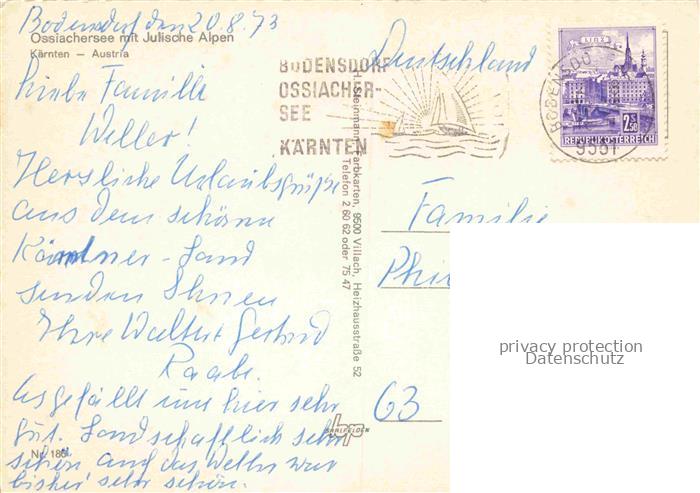 Bodensdorf den 20.8.73
Ossiachersee mit Julische Alpen
Kärnten – Austria
Liebe Familie
Weller!
Herzliche Urlaubsgrüße
aus dem schönen
Kärntner-Land
senden Ihnen
Ihre Walter Gertrud
Raabe
Es gefällt uns hier sehr
gut. Landschaftlich sehr
schön und das Wetter war
bisher sehr schön.
Nr. 186
H. Steinmann, Farbkarten, 9500 Villach, Heizhausstraße 52
Telefon 2 60 62 oder 75 47
BODENSDORF
OSSIACHER-
SEE
KÄRNTEN
Deutschland
LINZ
2S50
REPUBLIK ÖSTERREICH
BODENSDO
9551
Familie
Phi
63
SAALFELDEN
privacy protection
Datenschutz